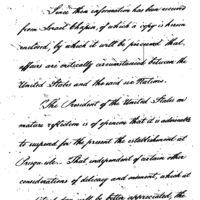 Since then information has been received
from Israel Chapin, of which a copy is herein
enclosed, by which it will be perceived that
affairs are critically circumstanced between the
United States and the said six Nations.
The President of the United States on
mature reflection is of opinion that it is advisable
to suspend for the present the establishment at
Presqu isle. That, independent of certain other
considerations of delicacy and moment, which at
will be better appreciated, the